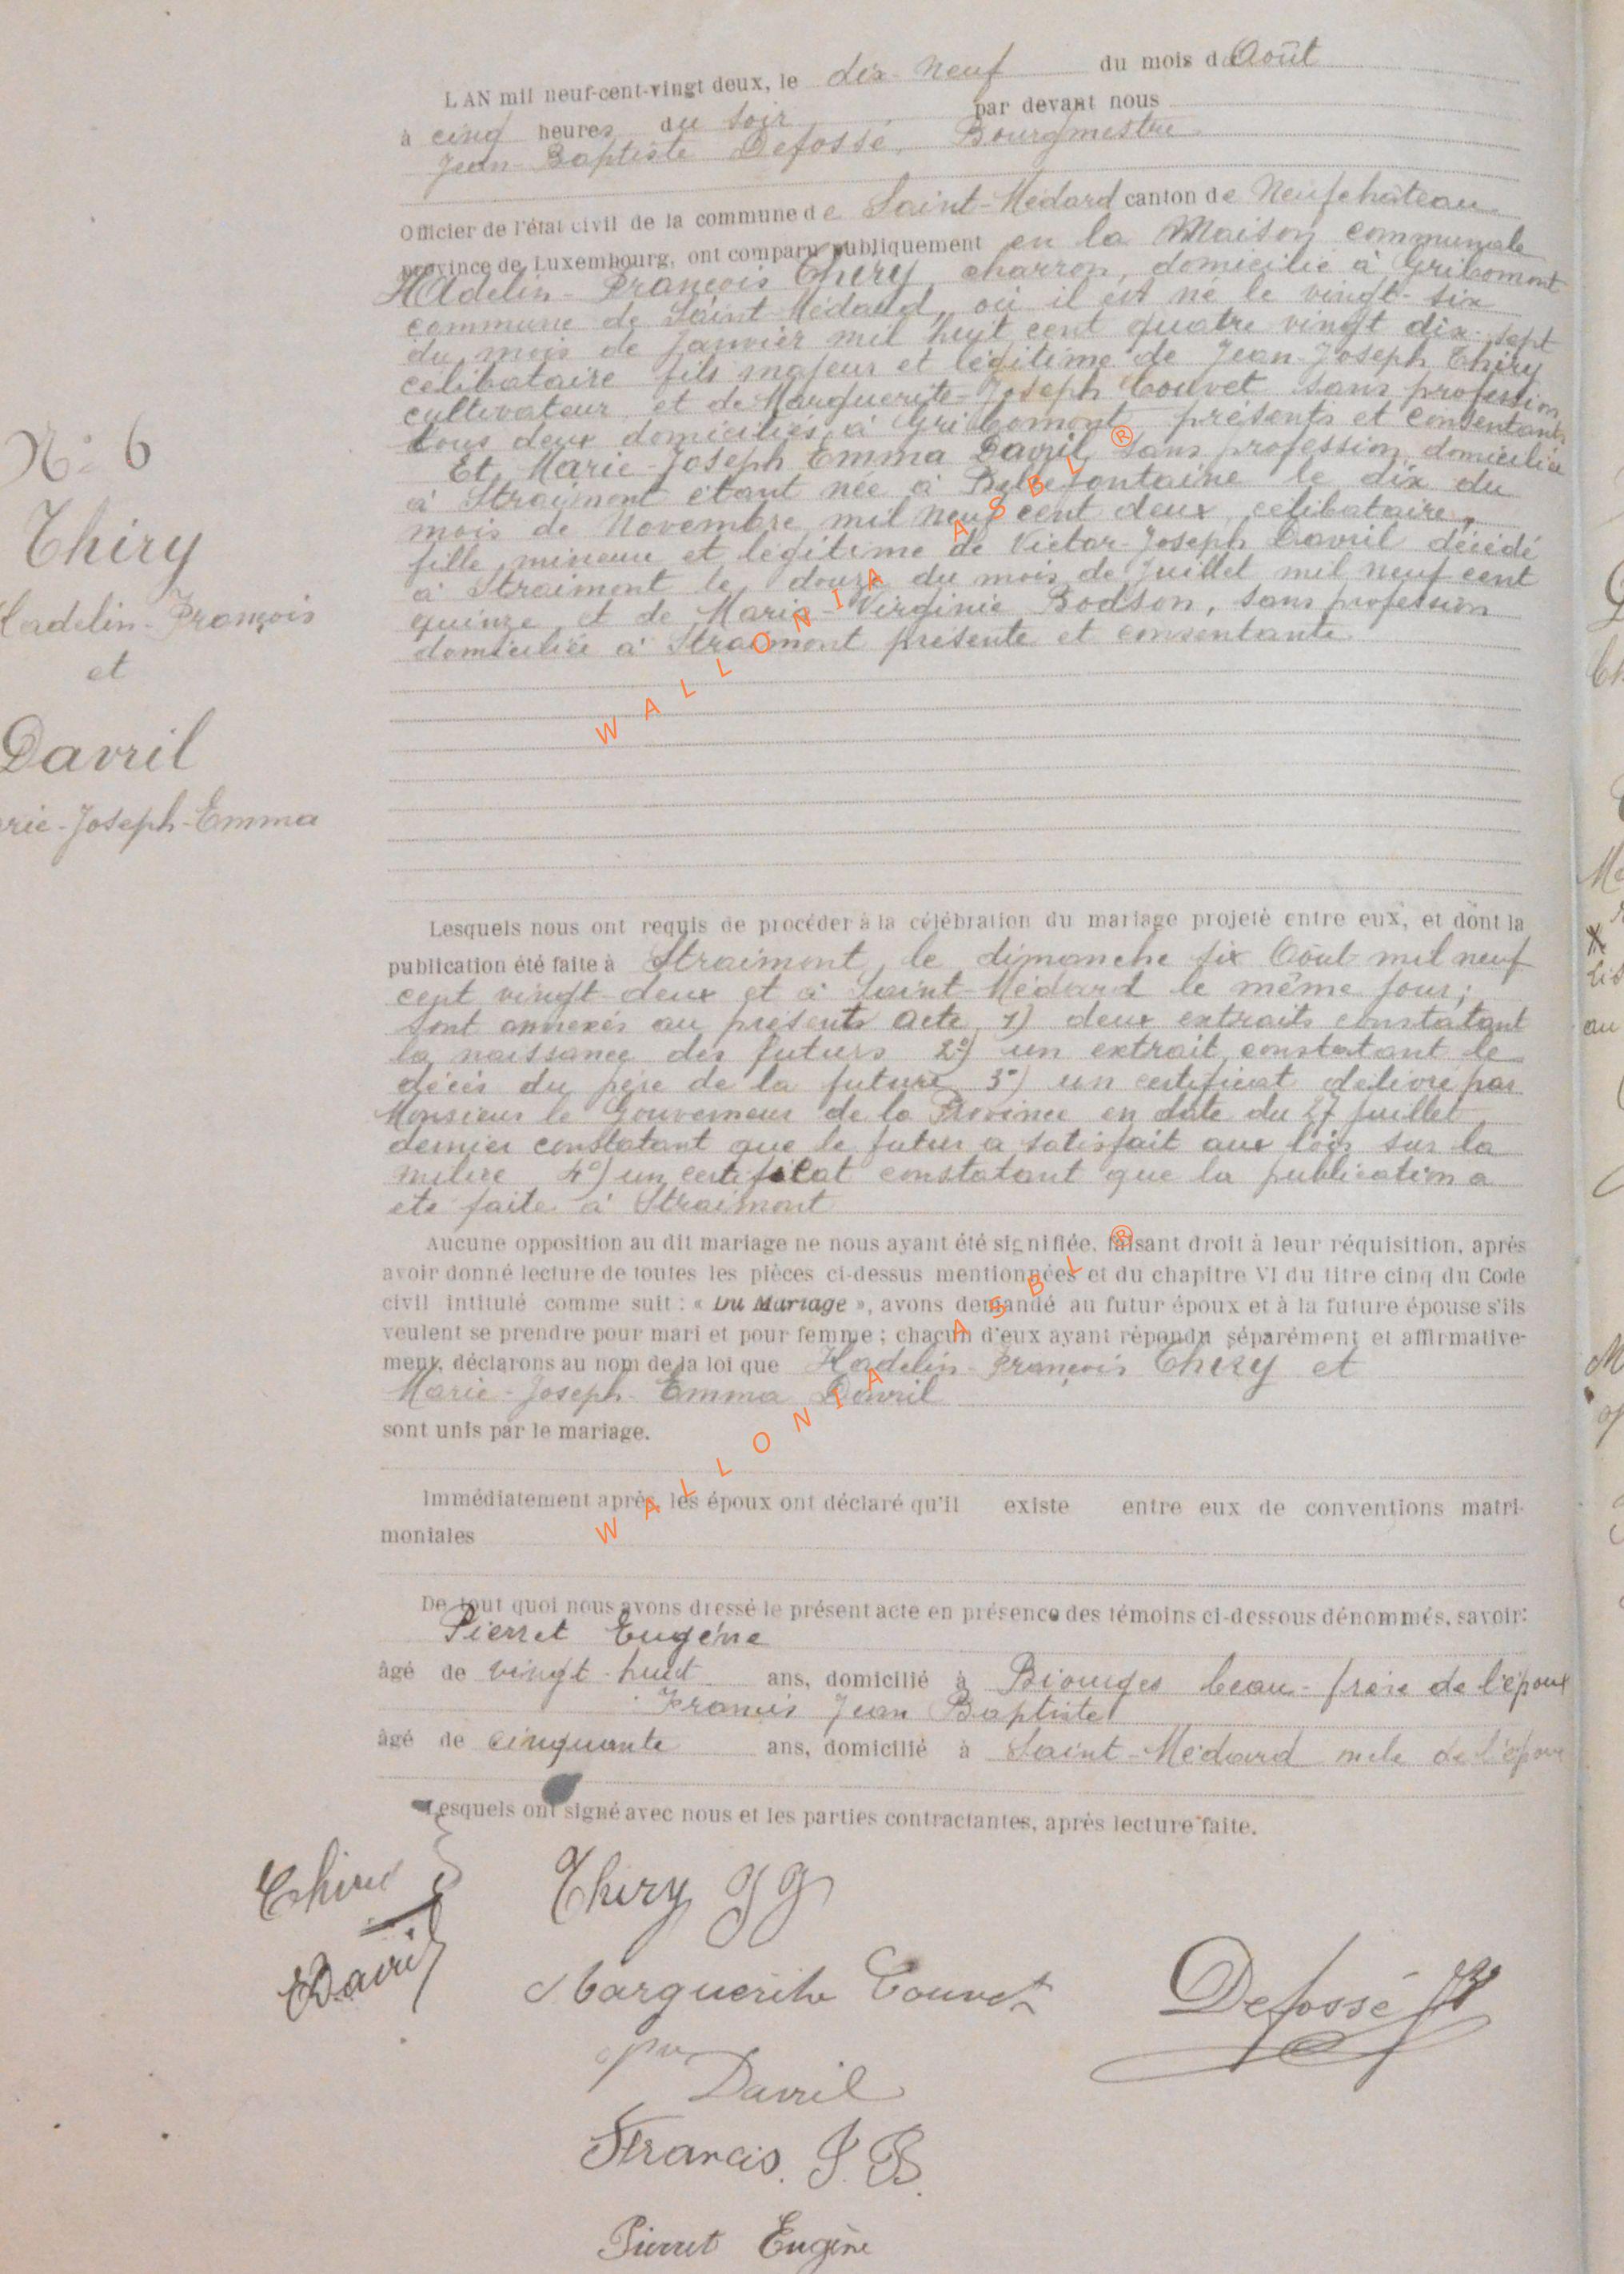 N° 6
Thiry
Hadelin-François
et
Davril
rie-Joseph-Emma
L AN mil neuf-cent-vingt deux, le dix-neuf du mois d'Août
à cinq heures du soir par devant nous
Jean-Baptiste Defossé, Bourgmestre
Officier de l'état civil de la commune de Saint-Médard canton de Neufchâteau
province de Luxembourg, ont comparu publiquement en la Maison communale
Hadelin-François Thiry, charron, domicilié à Gribomont
commune de Saint-Médard, où il est né le vingt-six
du mois de janvier mil huit cent quatre vingt dix-sept
célibataire fils majeur et légitime de Jean-Joseph Thiry
cultivateur et de Marguerite-Joseph Couvet sans profession,
tous deux domiciliés à Gribomont présents et consentants
Et Marie-Joseph Emma Davril, sans profession, domiciliée
à Straimont étant née à Bellefontaine le dix du
mois de Novembre mil neuf cent deux, célibataire,
fille mineure et légitime de Victor-Joseph Davril décédé
à Straimont le douze du mois de Juillet mil neuf cent
quinze et de Marie-Virginie Bodson, sans profession
domiciliée à Straimont présente et consentante.
Lesquels nous ont requis de procéder à la célébration du mariage projeté entre eux, et dont la
publication été faite à Straimont, le dimanche six Août mil neuf
cent vingt-deux et à Saint-Médard le même jour;
sont annexés au présents acte 1) deux extraits constatant
la naissance des futurs 2°) un extrait constatant le
décès du père de la future 3°) un certificat délivré par
Monsieur le Gouverneur de la Province en date du 27 juillet
dernier constatant que le futur a satisfait aux lois sur la
milice 4°) un certificat constatant que la publication a
été faite à Straimont
Aucune opposition au dit mariage ne nous ayant été signifiée, faisant droit à leur réquisition, après
avoir donné lecture de toutes les pièces ci-dessus mentionnées et du chapitre VI du titre cinq du Code
civil intitulé comme suit : « Du Mariage », avons demandé au futur époux et à la future épouse s'ils
veulent se prendre pour mari et pour femme ; chacun d'eux ayant répondu séparément et affirmative-
ment, déclarons au nom de la loi que Hadelin-François Thiry et
Marie-Joseph-Emma Davril
sont unis par le mariage.
Immédiatement après, les époux ont déclaré qu'il existe entre eux de conventions matri-
moniales
De tout quoi nous avons dressé le présent acte en présence des témoins ci-dessous dénommés, savoir:
Pierret Eugène
âgé de vingt-huit ans, domicilié à Biourges beau-frère de l'époux
Francis Jean Baptiste
âgé de cinquante ans, domicilié à Saint-Médard de l'époux
Lesquels ont signé avec nous et les parties contractantes, après lecture faite.
Thiry
EDavril
Thiry J J
Marguerite Couvet
Defossé JB
Davril
Francis. J. B.
Pierret Eugène
WALLONIA ASBL ®
WALLONIA ASBL ®